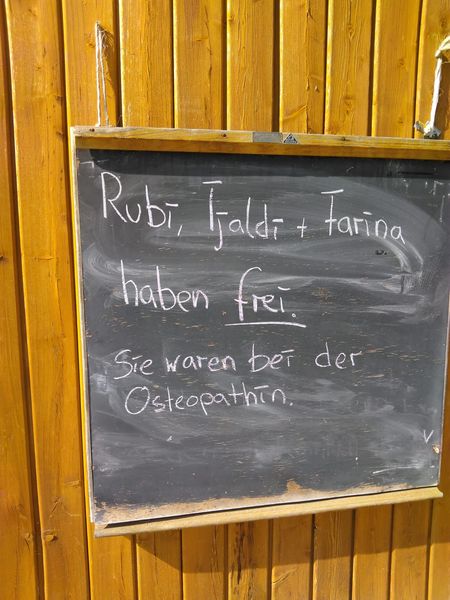 Rubi, Tjaldi + Farina
haben frei.
Sie waren bei der
Osteopathin.